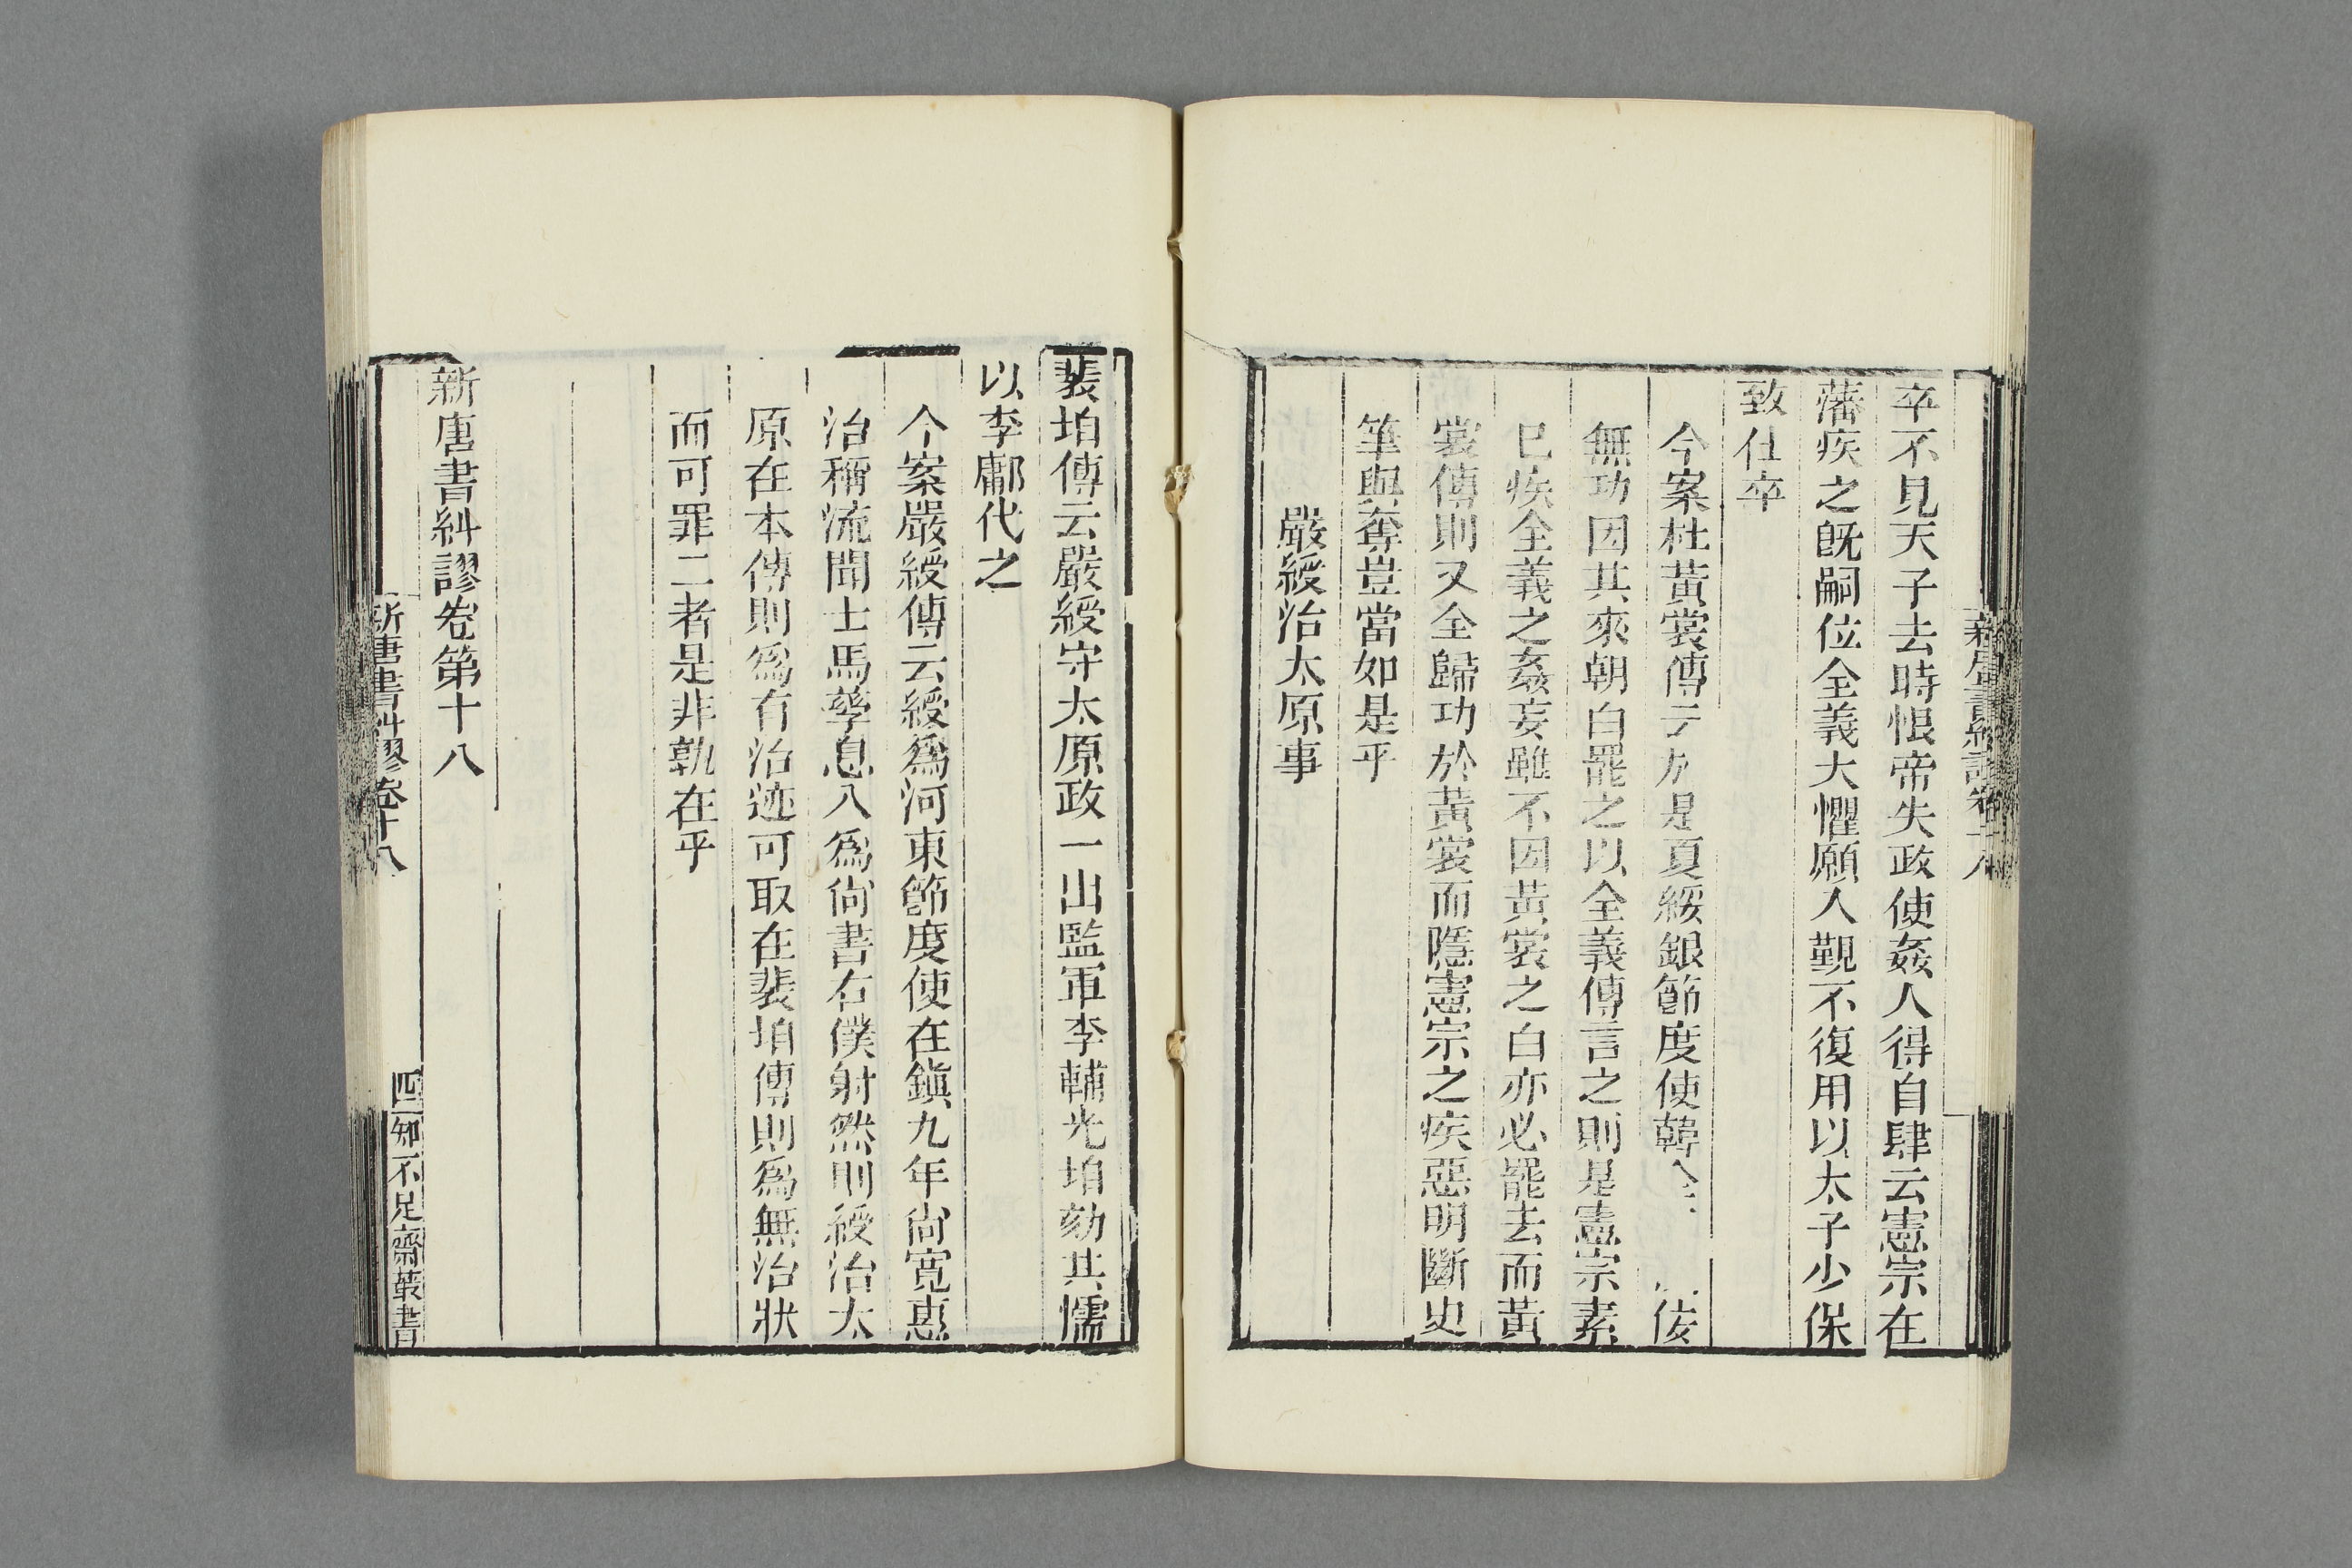 卒不見天子去時恨帝失政使姦人得自肆云憲宗在
藩疾之旣嗣位全義大懼願入覲不復用以太子少保
致仕卒
今案杜黃裳傳云於是夏綏銀節度使韓全 佞
無功因其來朝白罷之以全義傳言之則是憲宗素
已疾全義之姦妄雖不因黃裳之白亦必罷去而黃
裳傳則又全歸功於黃裳而隱憲宗之疾惡明斷史
筆與奪豈當如是乎
嚴綬治太原事
裴垍傳云嚴綬守太原政一出監軍李輔光垍劾其懦
以李鄘代之
今案嚴綬傳云綬爲河東節度使在鎭九年尙寬惠
治稱流聞士馬孳息入爲尙書右僕射然則綬治太
原在本傳則爲有治迹可取在裴垍傳則爲無治狀
而可罪二者是非孰在乎
新唐書糾謬卷第十八
新唐書糾謬卷十八
四
知不足齋叢書